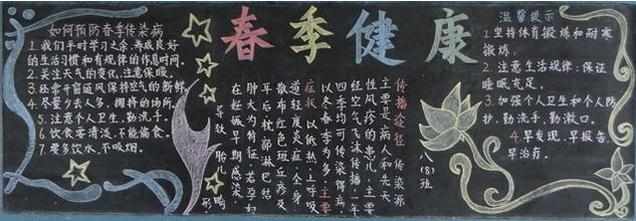 春季健康
如何预防春季传染病
1.我们平时学习之余,养成良好
的生活习惯和有规律的作息时间。
2.关注天气的变化,注意保暖。
3.经常开窗通风保持空气的新鲜
4.尽量少去人多,拥挤的场所。
5.注意个人卫生,勤洗手。
6.饮食要清淡,不能偏食。
7.要多饮水,不吸烟。
传播途径:传染源
主要是病人和先天
性风疹的患儿,主要
经空气飞沫传播,一年
四季均可传染得病,
以冬春季为多,主要
症状:以低热,上呼吸
道轻度炎症,全身
散布红色斑丘疹及
耳后枕部淋巴结
肿大为特征,若孕妇
在妊娠早期感染,
导致胎儿畸形。
八(8)班
温馨提示
1.坚持体育锻炼和耐寒
锻炼。
2.注意生活规律:保证
睡眠充足。
3.加强个人卫生和个人防
护,勤洗手,勤漱口。
4.早发现,早报告,
早治疗。